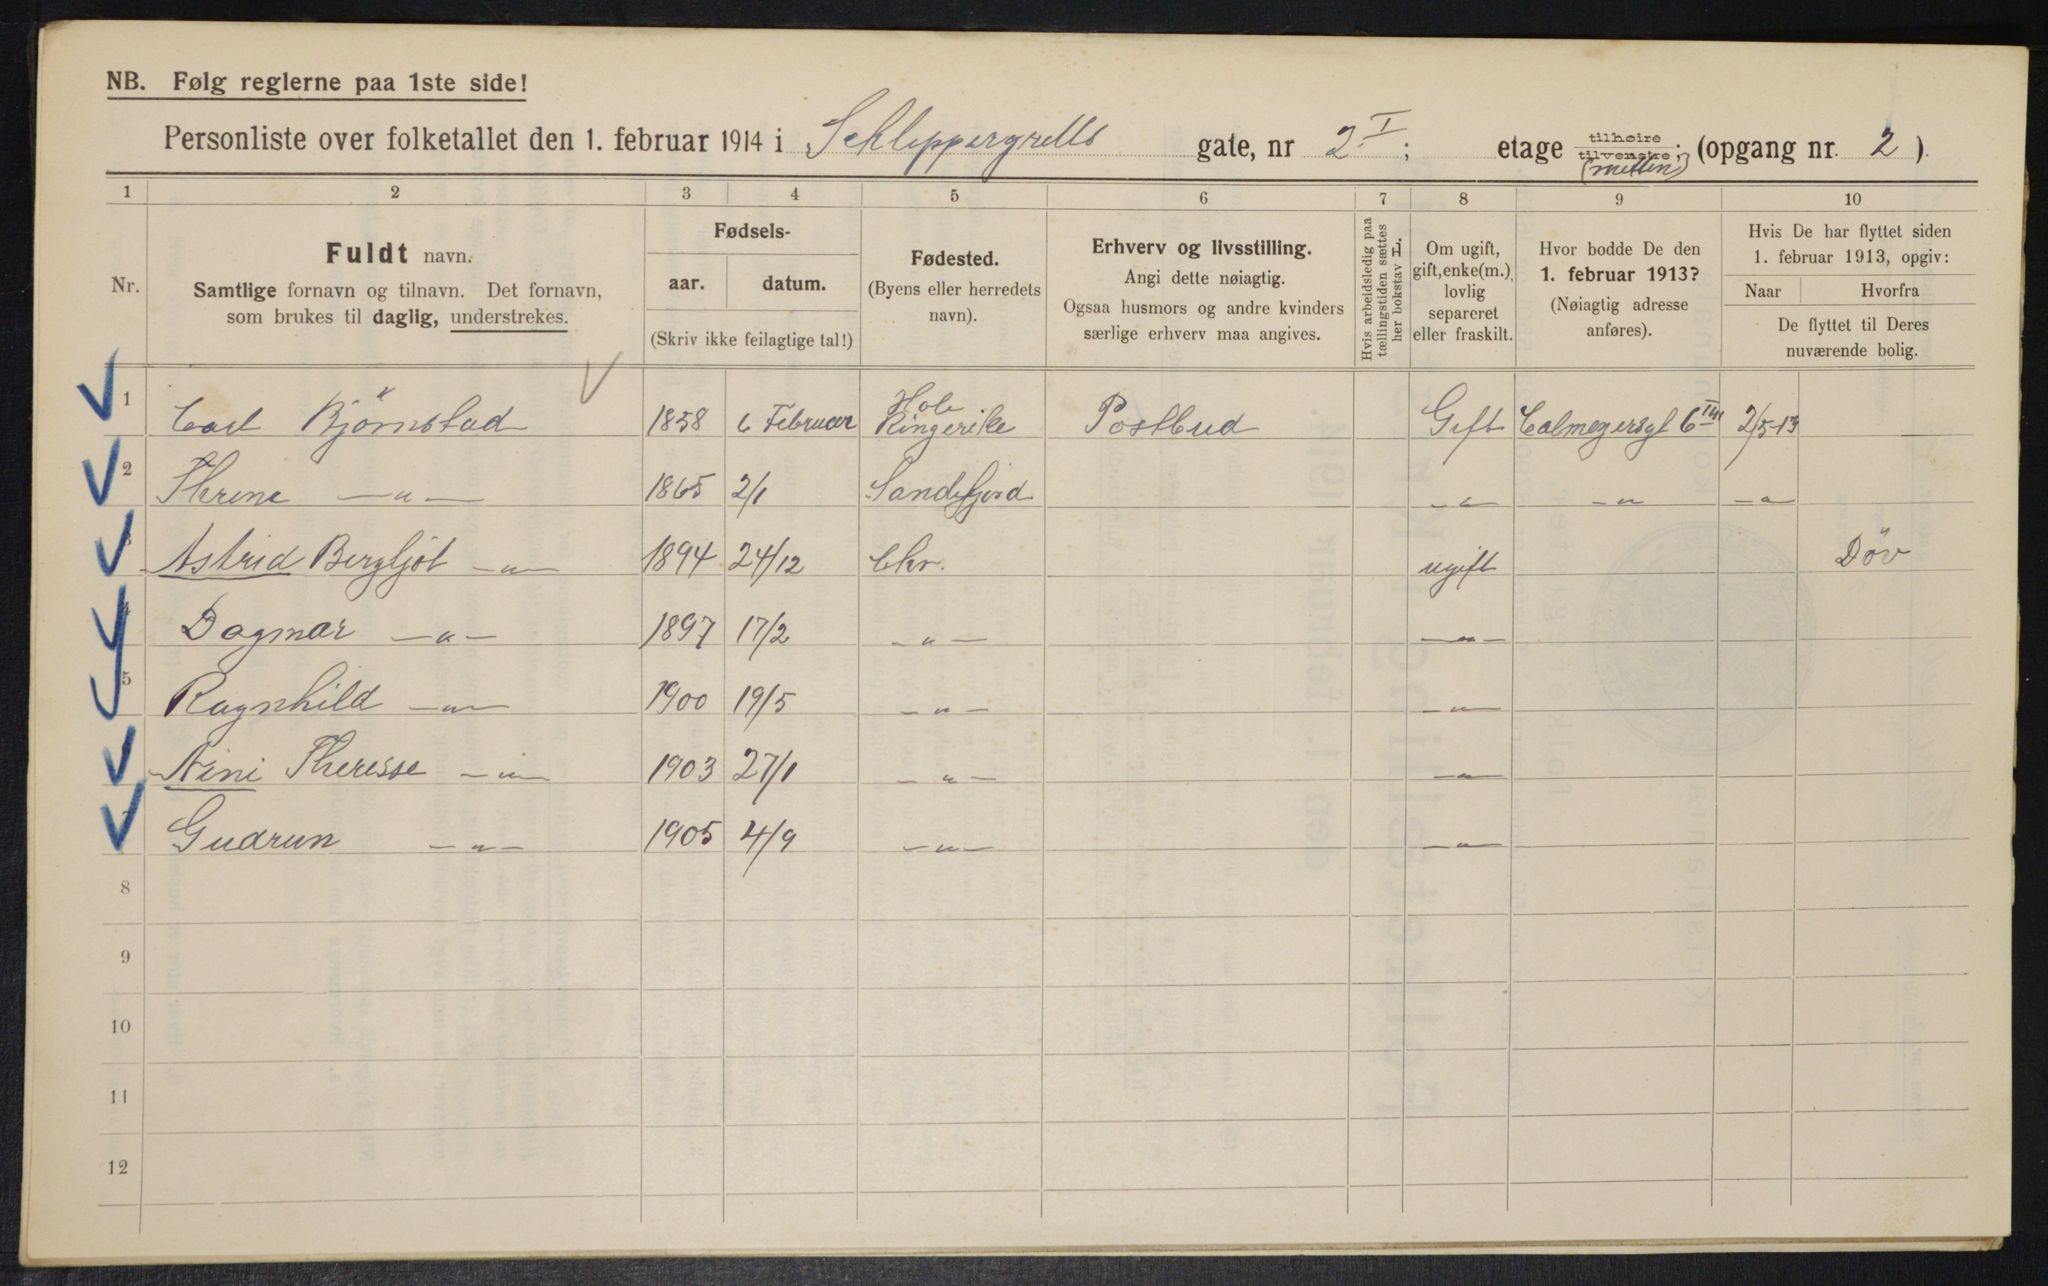 NB. Følg reglerne paa 1ste side!
Personliste over folketallet den 1. februar 1914 i Schleppergrells gate, nr 2 I; etage tilhøire tilvenstre; (opgang nr. 2).
(mitten)
1 2 3 4 5 6 7 8 9 10
Nr.
Fuldt navn.
Samtlige fornavn og tilnavn. Det fornavn,
som brukes til daglig, understrekes.
Fødsels-
aar. datum.
(Skriv ikke feilagtige tal!)
Fødested.
(Byens eller herredets
navn).
Erhverv og livsstilling.
Angi dette nøiagtig.
Ogsaa husmors og andre kvinders
særlige erhverv maa angives.
Hvis arbeidsledig paa
tællingstiden sættes
her bokstav L.
Om ugift,
gift, enke(m.),
lovlig
separeret
eller fraskilt.
Hvor bodde De den
1. februar 1913?
(Nøiagtig adresse
anføres).
Hvis De har flyttet siden
1. februar 1913, opgiv:
Naar Hvorfra
De flyttet til Deres
nuværende bolig.
1 Carl Bjørnstad 1858 6 Februar Hole Ringerike Postbud Gift Calmeyersgt 6 2/5-13
2 Threne —"— 1865 2/1 Sandefjord —"— —"— —"—
3 Astrid Bergljot —"— 1894 24/12 Chr. ugift Døv
4 Dagmar —"— 1897 17/2 —"— —"—
5 Ragnhild —"— 1900 19/5 —"— —"—
Nini Theresse —"— 1903 27/1 —"— —"—
7 Gudrun —"— 1905 4/9 —"— —"—
8
9
10
11
12